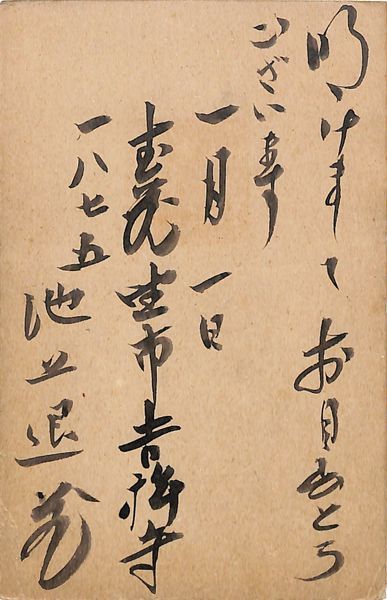 明けまして お目出とう
ございます
一月 一日
武蔵野市吉祥寺
一八七五
池上退蔵